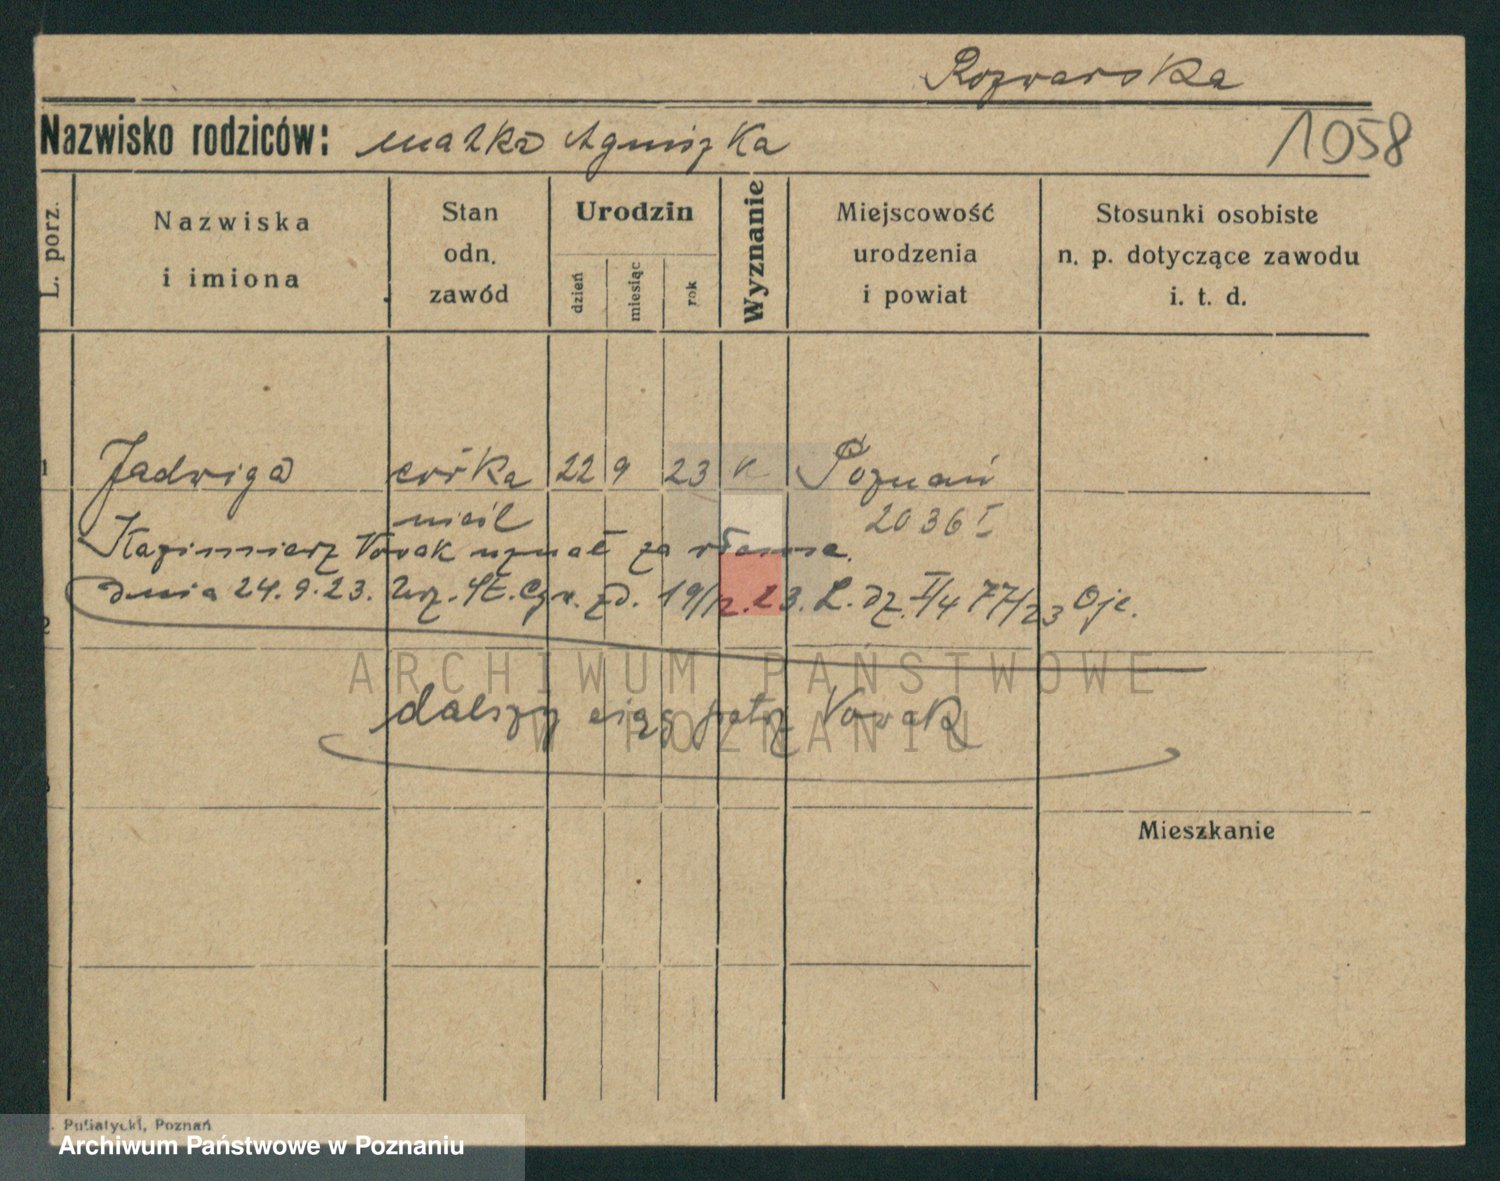 Rozwarska
Nazwisko rodziców: matka Agniszka
1058
L. porz.
Nazwiska
i imiona
Stan
odn.
zawód
Urodzin
dzień
miesiąc
rok
Wyznanie
Miejscowość
urodzenia
i powiat
Stosunki osobiste
n. p. dotyczące zawodu
i. t. d.
1 Jadwiga córka 22 9 23 k Poznań
nieśl 2036 I
Kazimierz Nowak uznał za własne.
dnia 24.9.23. Urz. St. Cyw. zd. 19/12.23. L. dz. I/4 77/23
2
dalszy ciąg patrz Nowak
3
Mieszkanie
Putiatycki, Poznań
ARCHIWUM PAŃSTWOWE
W POZNANIU
Archiwum Państwowe w Poznaniu